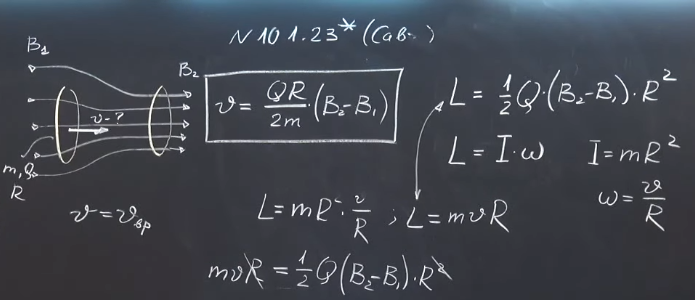 N 10 1.23* (Сав.)
B₁
B₂
v-?
m, Q
R
v = v_вр
v = QR/2m · (B₂-B₁)
L = 1/2 Q·(B₂-B₁)·R²
L = I·ω
I = mR²
ω = v/R
L = mR²·v/R ; L = mvR
mvR = 1/2 Q(B₂-B₁)·R²